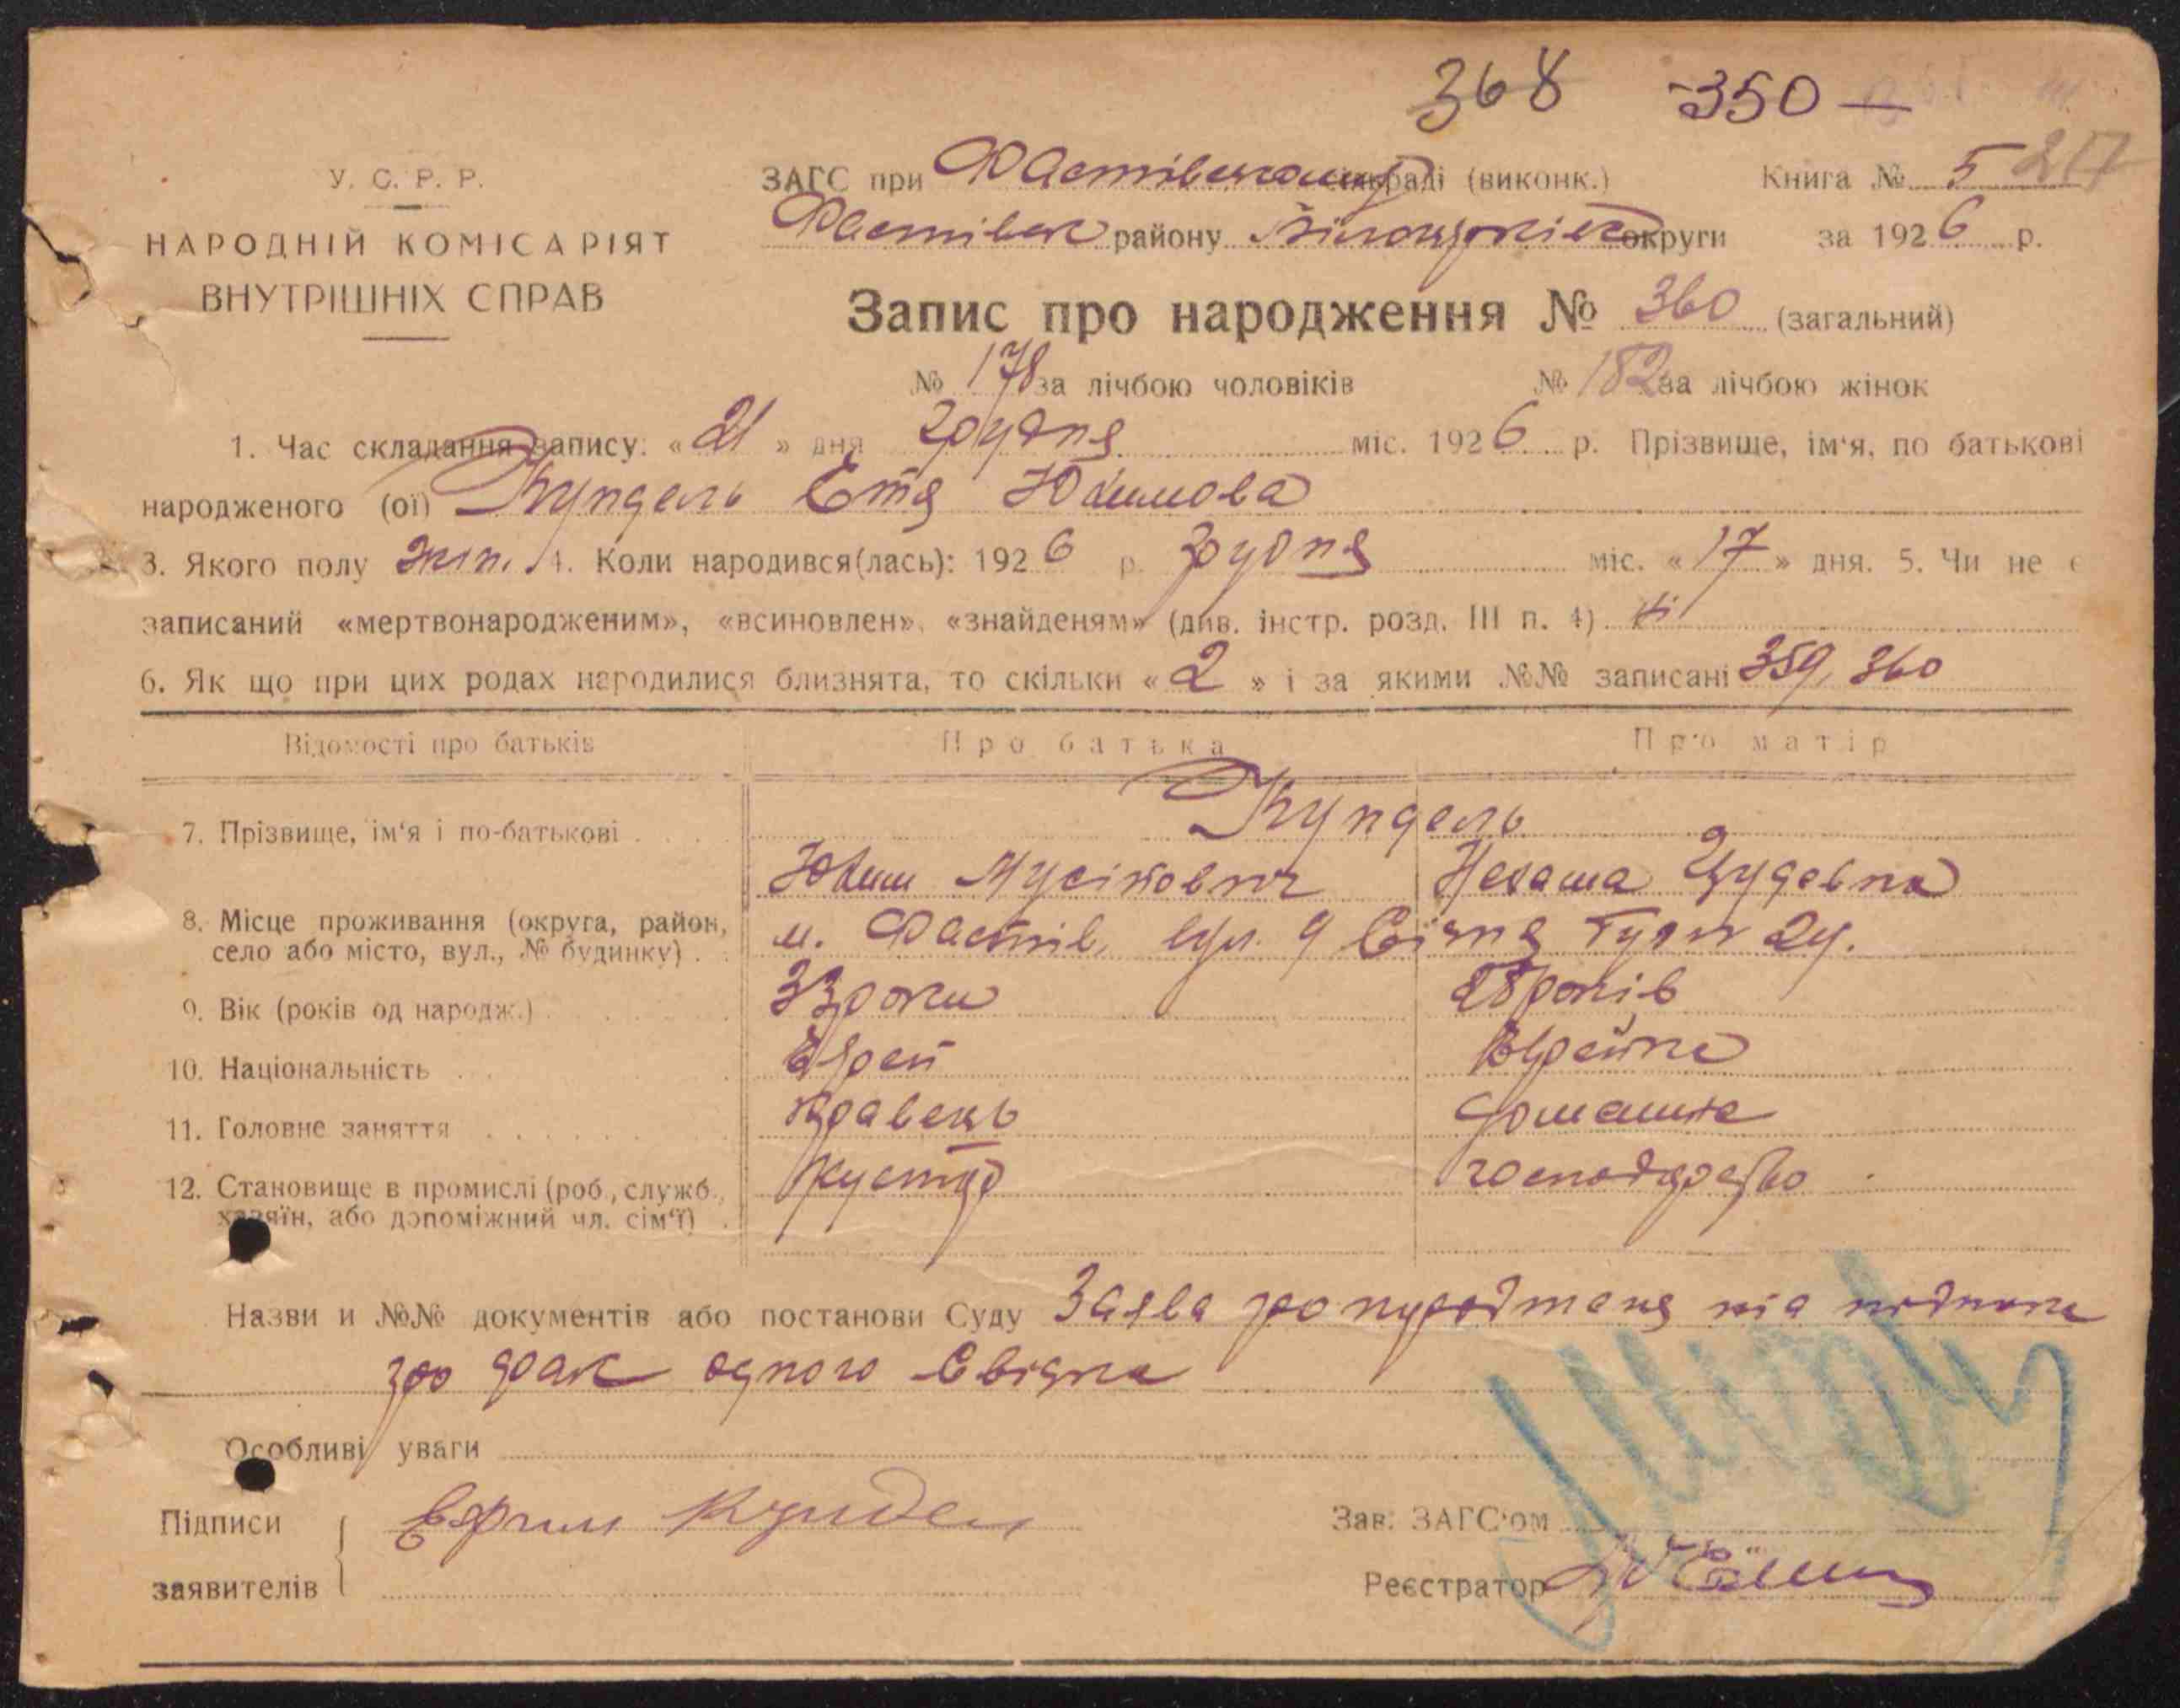 368 350 —
У. С. Р. Р.
НАРОДНІЙ КОМІСАРІЯТ
ВНУТРІШНІХ СПРАВ
ЗАГС при Фастівському окраді (виконк.) Книга № 5 217
Фастівськ району Білоцерківськ округи за 1926 р.
Запис про народження № 360 (загальний)
№ 178 за лічбою чоловіків № 182 за лічбою жінок
1. Час складання запису: « 21 » дня грудня міс. 1926 р. Прізвище, ім'я, по батькові
народженого (ої) Кундель Етя Юхимова
3. Якого полу жін. 4. Коли народився(лась): 1926 р. грудня міс. « 17 » дня. 5. Чи не є
записаний «мертвонародженим», «всиновлен», «знайденям» (див. інстр. розд. III п. 4) ні
6. Як що при цих родах народилися близнята, то скільки « 2 » і за якими №№ записані 359, 360
Відомості про батьків Про батька Про матір
7. Прізвище, ім'я і по-батькові Кундель
Юхим Мусійович Нехама
8. Місце проживання (округа, район,
село або місто, вул., № будинку)
м. Фастів, вул. 9 Січня
9. Вік (років од народж.) 33 роки 28 років
10. Національність Єврей Єврейка
11. Головне заняття кравець домашнє
12. Становище в промислі (роб., служб.,
хазяїн, або допоміжний чл. сім'ї)
кустар господарство
Назви и №№ документів або постанови Суду Заява про народження та підписка
про брак одного свідка
Особливі уваги
Підписи
заявителів
Ефрим Кундел
Зав. ЗАГС'ом
Реєстратор